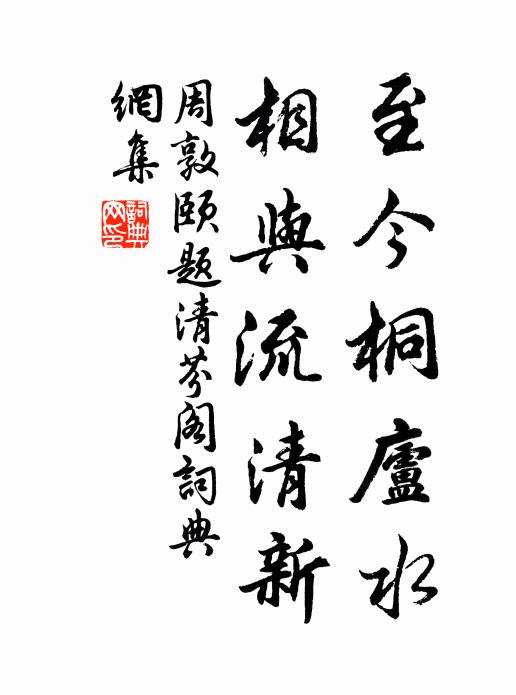 至今桐廬水
相與流清新
周敦颐题清芬阁詞典
網集
詞典网印